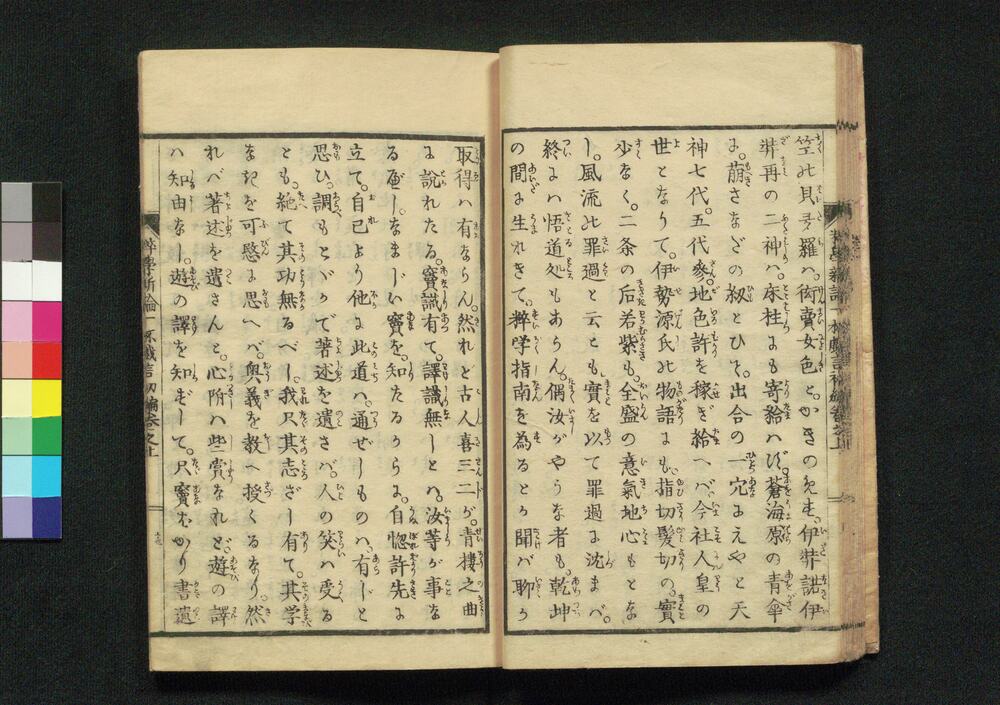 竺の貝多羅ハ。衒賣女色とかきのこせ。伊弉諾伊
弉再の二神ハ。床柱にも寄給ハず。蒼海原の青傘
に。萠さなどの奴とひて。出合の一穴にえやと天
神七代。五代參。地色許を稼ぎ給へバ。今社人皇の
世となりて。伊勢源氏の物語にも。指切髪切の。實
少なく。二条の后若紫も。全盛の意氣地心もとな
し。風流の罪過と云とも。實を以て罪過に沈まバ。
終にハ悟道処もあらん。偶汝がやうな者も。乾坤
の間に生れきて。粹学指南を為るとか聞バ聊か
取得ハ有ならん。然れと古人喜三二が。青樓之曲
に説れたる。竇識有て。譯識無しとハ。汝等が事な
るべし。なまじい竇を。知たるからに。自惚許先に
立て。自己より他に此道ハ。通ぜしものハ。有じと
思ひ。調もとゝかで著述を遺さバ。人の笑ハ受る
とも。絶て其功無るべし。我只其志ざし有て。其学
なきを可愍に思へバ。奥義を教へ授くるなり。然
れバ著述を遺さんと。心階ハ些賞なれど。遊の譯
ハ知由なし。遊の譯を知ずして。只竇ばかり書遺